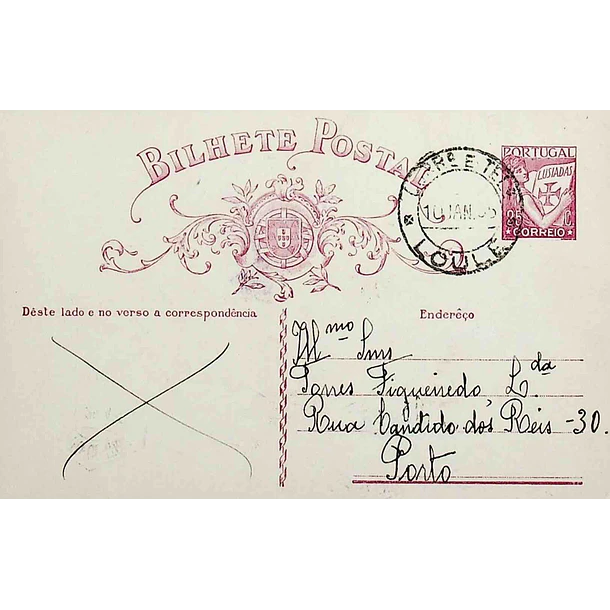 BILHETE POSTAL
PORTUGAL
LUSIADAS
25 C.
CORREIO
CORR. E TEL.
10 JAN.
LOULÉ
Dêste lado e no verso a correspondência
Enderêço
Il.mos Snrs
Pones Figueiredo, L.da
Rua Candido dos Reis - 30.
Porto